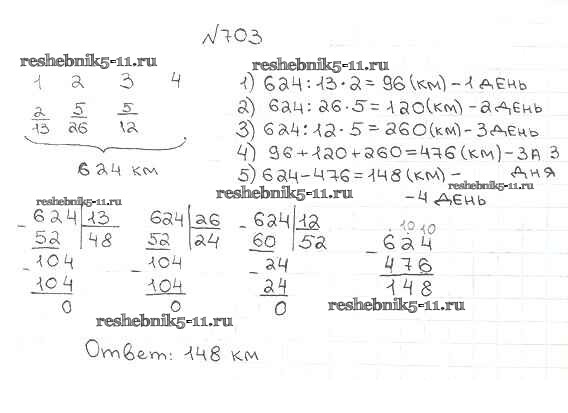 №703
reshebnik5-11.ru
1 2 3 4
2/13 5/26 5/12
624 км
reshebnik5-11.ru
1) 624:13·2=96(км)-1 ДЕНЬ
2) 624:26·5=120(км)-2 ДЕНЬ
3) 624:12·5=260(км)-3 ДЕНЬ
4) 96+120+260=476(км)-ЗА 3 ДНЯ
5) 624-476=148(км)-
reshebnik5-11.ru
-4 ДЕНЬ
reshebnik5-11.ru
reshebnik5-11.ru
-624 13
52 48
-104
104
0
624 26
52 24
-104
104
0
-624 12
60 52
-24
24
0
10 10
-624
476
148
reshebnik5-11.ru
reshebnik5-11.ru
Ответ: 148 км